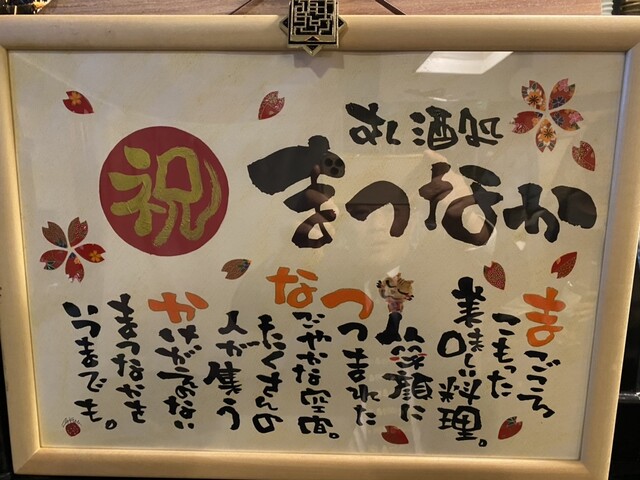 祝
お酒処
まつなか
まごころ
こもった
美味しい料理。
笑顔に
つつまれた
なごやかな空間。
たくさんの
人が集う
かけがえのない
まつなかを
いつまでも。